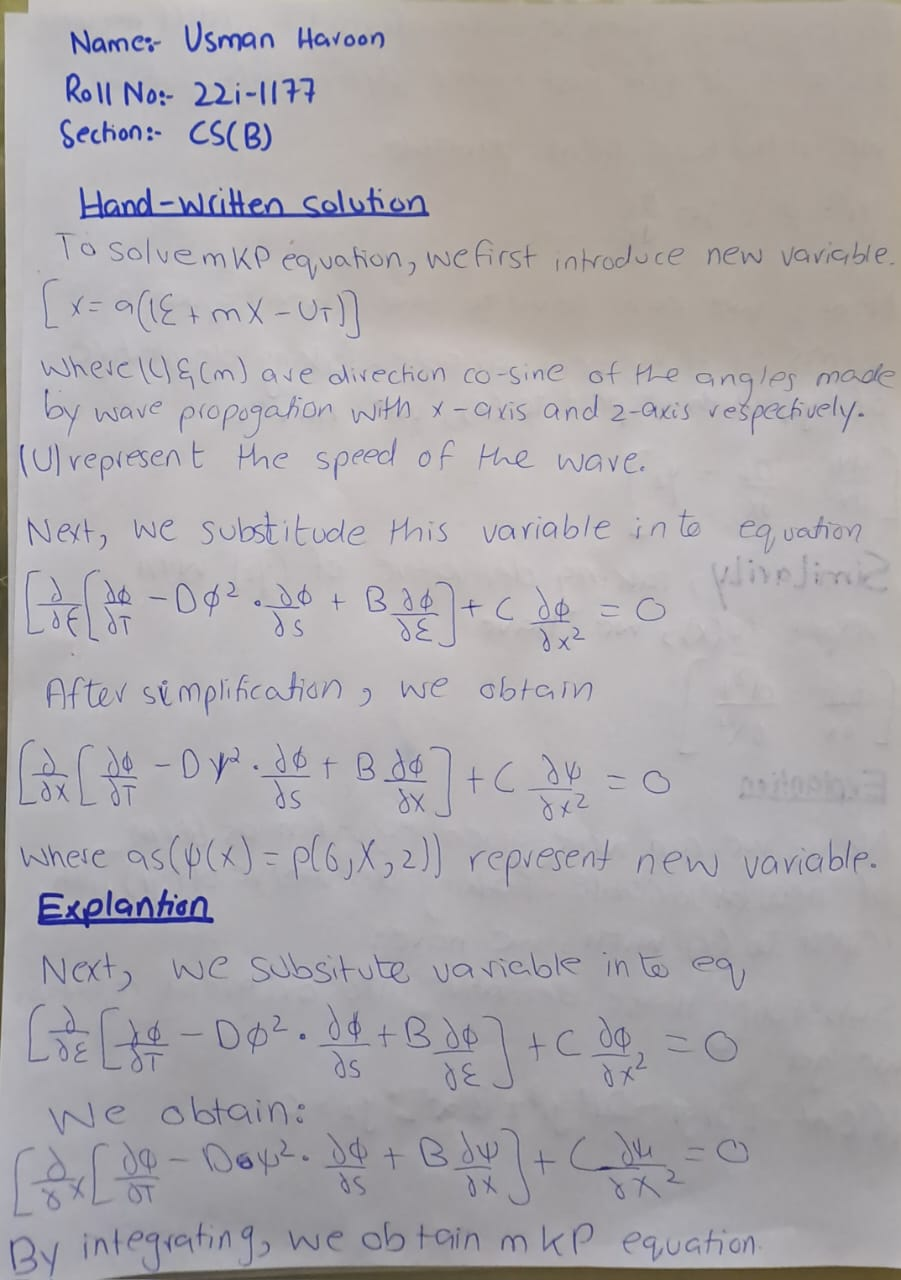 Name:- Usman Haroon
Roll No:- 22i-1177
Section:- CS(B)
Hand-written solution
To solve mKP equation, we first introduce new variable.
[x = a(lξ + mX - UT)]
Where (l) & (m) are direction co-sine of the angles made
by wave propogation with x-axis and z-axis respectively.
(U) represent the speed of the wave.
Next, we substitude this variable in to equation
[∂/∂ξ [∂φ/∂T - Dφ² . ∂φ/∂s + B ∂φ/∂ξ] + C ∂φ/∂x² = 0
After simplification, we obtain
[∂/∂x [∂φ/∂T - Dψ² . ∂φ/∂s + B ∂φ/∂x] + C ∂ψ/∂x² = 0
where as (ψ(x) = p(6,X,2)) represent new variable.
Explantion
Next, we subsitute variable in to eq
[∂/∂ξ [∂φ/∂T - Dφ² . ∂φ/∂s + B ∂φ/∂ξ] + C ∂φ/∂x² = 0
We obtain:
[∂/∂x [∂φ/∂T - Dψ² . ∂φ/∂s + B ∂ψ/∂x] + C ∂ψ/∂x² = 0
By integrating, we obtain mkP equation.